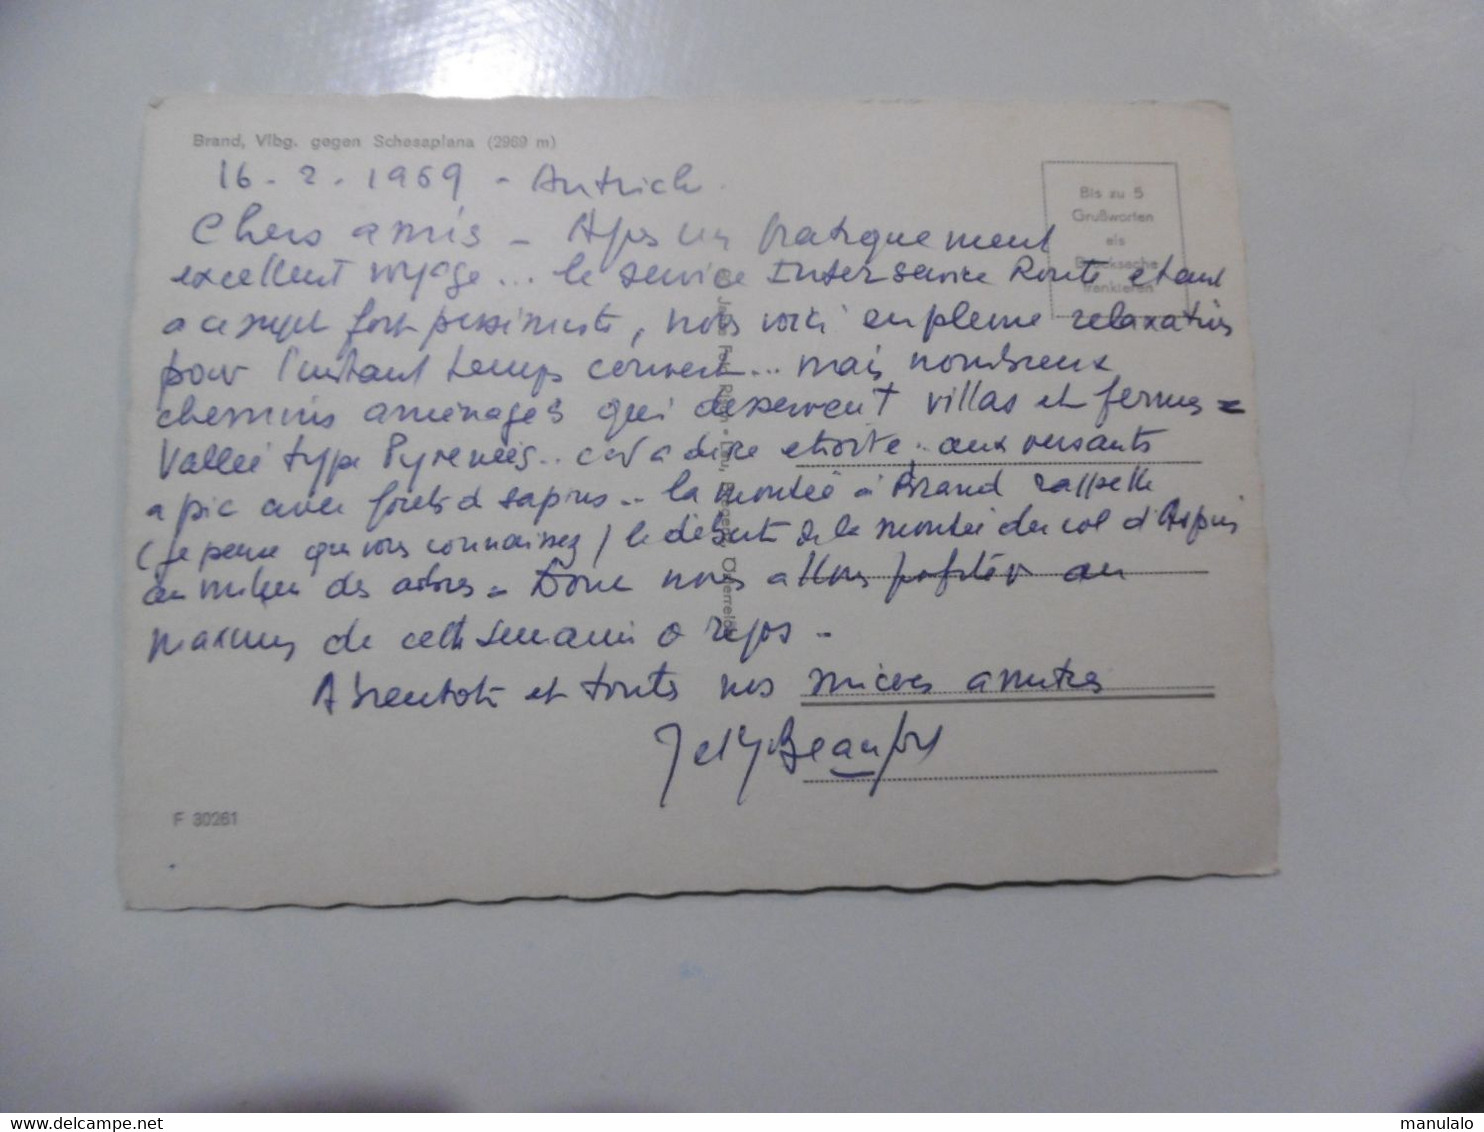 Brand, Vlbg. gegen Schesaplana (2969 m)
16 - 2 - 1969 - Autriche.
Chers amis - Après un pratiquement
excellent voyage... le service Inter service Route etant
a ce sujet fort pessimiste, nous voici en pleine relaxation
pour l'instant temps couvert... mais nombreux
chemins aménagés qui desservent villas et fermes =
Vallée type Pyrenées.. c'est a dire etroite, .. aux versants
a pic avec forêts d sapins... la montée à Brand rappelle
(je pense que vous connaissez) le début de la montée du col d'Aspin
au milieu des arbres - Donc nous allons profiter au
maximum de cette semaine d repos -
A bientot et toutes nos sincères amitiés
J et Y Beaufort
Bis zu 5
Grußworten
als
Drucksache
frankieren
F 30261
delcampe.net
manulalo